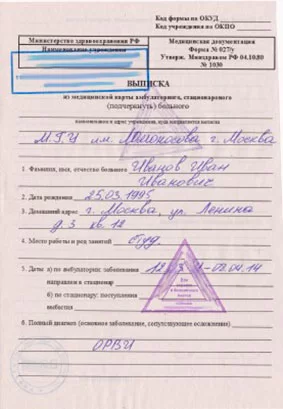 Код формы по ОКУД
Код учреждения по ОКПО
Министерство здравоохранения РФ
Наименование учреждения
Медицинская документация
Форма № 027/у
Утверж. Минздравом РФ 04.10.80
№ 1030
ВЫПИСКА
из медицинской карты амбулаторного, стационарного
(подчеркнуть) больного
наименование и адрес учрежд., куда направляется выписка
МГУ им. Ломоносова г. Москва
1. Фамилия, имя, отчество больного Иванов Иван
Иванович
2. Дата рождения 25.03.1995
3. Домашний адрес г. Москва, ул. Ленина
д. 3 кв. 12
4. Место работы и род занятий студ.
5. Даты: а) по амбулатории: заболевания
направлен в стационар
б) по стационару: поступления
выбытия
Для
справок
6. Полный диагноз (основное заболевание, сопутствующее осложнение)
ОРВИ